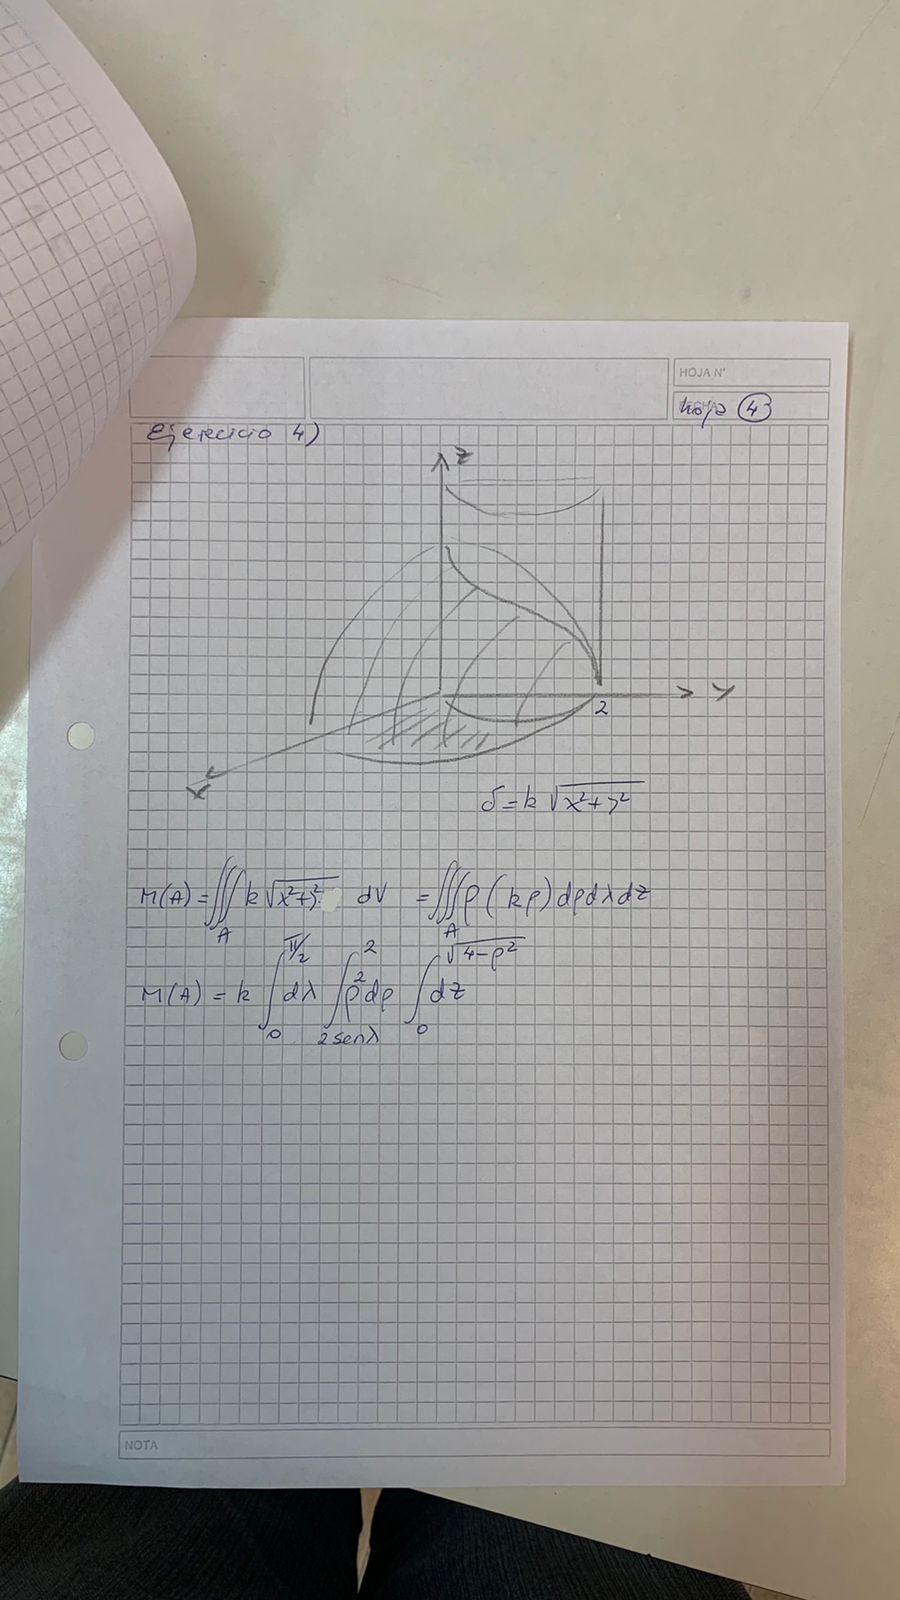 HOJA N°
Hoja 4
Ejercicio 4)
Z
Y
2
X
δ = k √(x²+y²)
M(A) = ∭_A k √(x²+y²) dV = ∭_A ρ (kρ) dρ dλ dz
M(A) = k ∫_0^{π/2} dλ ∫_{2 sen λ}^{2} ρ² dρ ∫_0^{√(4-ρ²)} dz
NOTA